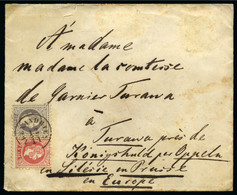 A madame
madame la comtesse
de Garnier Turawa
à
Turawa près de
Königshuld per Oppeln
en Silésie en Prusse
en Europe